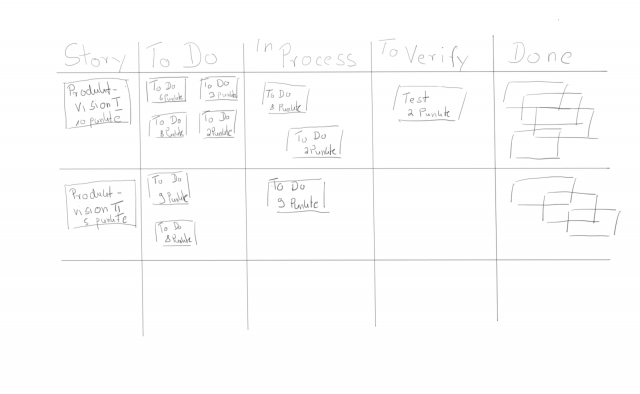 Story To Do In Process To Verify Done
Produkt-
vision I
10 punkte
To Do
To Do
2 Punkte
To Do
8 Punkte
To Do
2 Punkte
To Do
8 Punkte
To Do
2 Punkte
Test
2 Punkte
Produkt-
vision II
5 punkte
To Do
9 Punkte
To Do
8 Punkte
To Do
9 Punkte